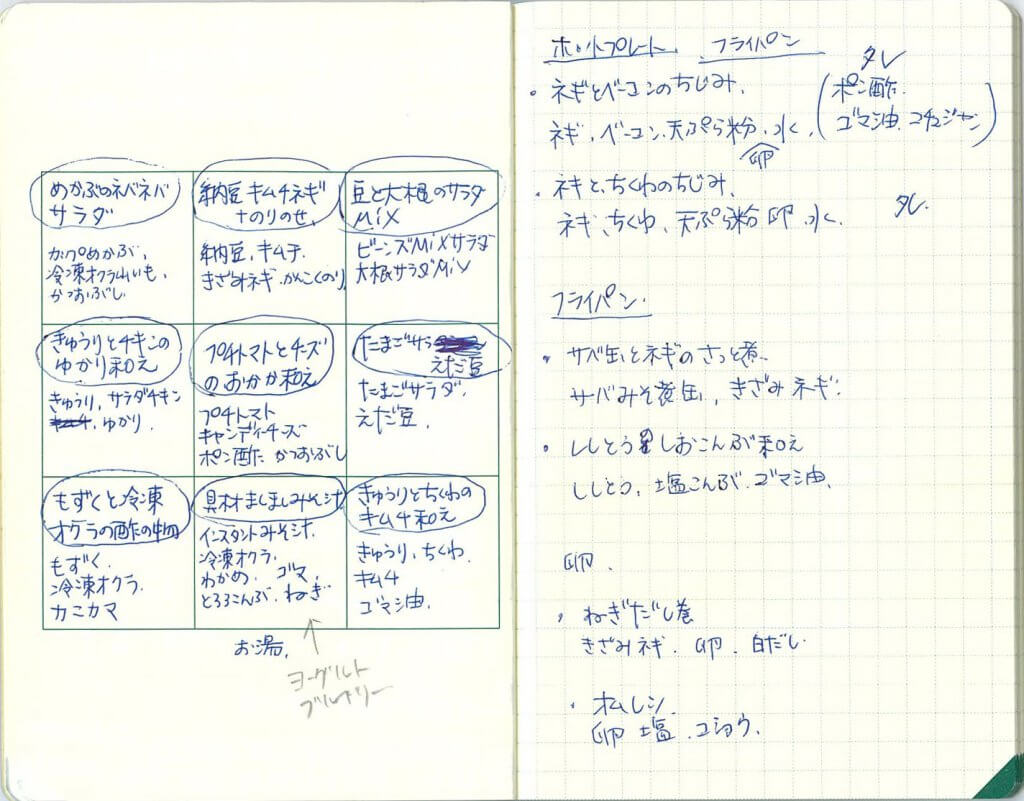 めかぶのネバネバ
サラダ
カップめかぶ、
冷凍オクラ山いも、
かつおぶし
納豆キムチネギ
+のりのせ
納豆、キムチ、
きざみネギ.かんこくのり
豆と大根のサラダ
MiX
ビーンズMiXサラダ
大根サラダMiX
きゅうりとチキンの
ゆかり和え
きゅうり、サラダチキン
ゆかり.
プチトマトとチーズ
のおかか和え
プチトマト
キャンディーチーズ
ポン酢 かつおぶし
たまごサラ
えだ豆
たまごサラダ.
えだ豆.
もずくと冷凍
オクラの酢の物
もずく.
冷凍オクラ.
カニカマ
具材ましましみそ汁
インスタントみそ汁
冷凍オクラ.
わかめ. ゴマ,
とろろこんぶ、ねぎ
きゅうりとちくわの
キムチ和え
きゅうり、ちくわ.
キムチ
ゴマ油.
お湯.
↑
ヨーグルト
ブルーリー
ホットプレート、 フライパン
・ネギとベーコンのちじみ.
ネギ、ベーコン、天ぷら粉、水、
卵
タレ
(ポン酢.
ゴマ油 コチュジャン)
・ネギと、ちくわのちじみ.
ネギ、ちくわ、天ぷら粉 卵、水. タレ.
フライパン.
・サバ缶とネギのさっと煮.
サバみそ煮缶、きざみネギ.
・ししとうのしおこんぶ和え
ししとう、塩こんぶ.ゴマ油.
卵.
・ねぎだし巻
きざみネギ. 卵. 白だし
・オムレツ.
卵 塩.コショウ.